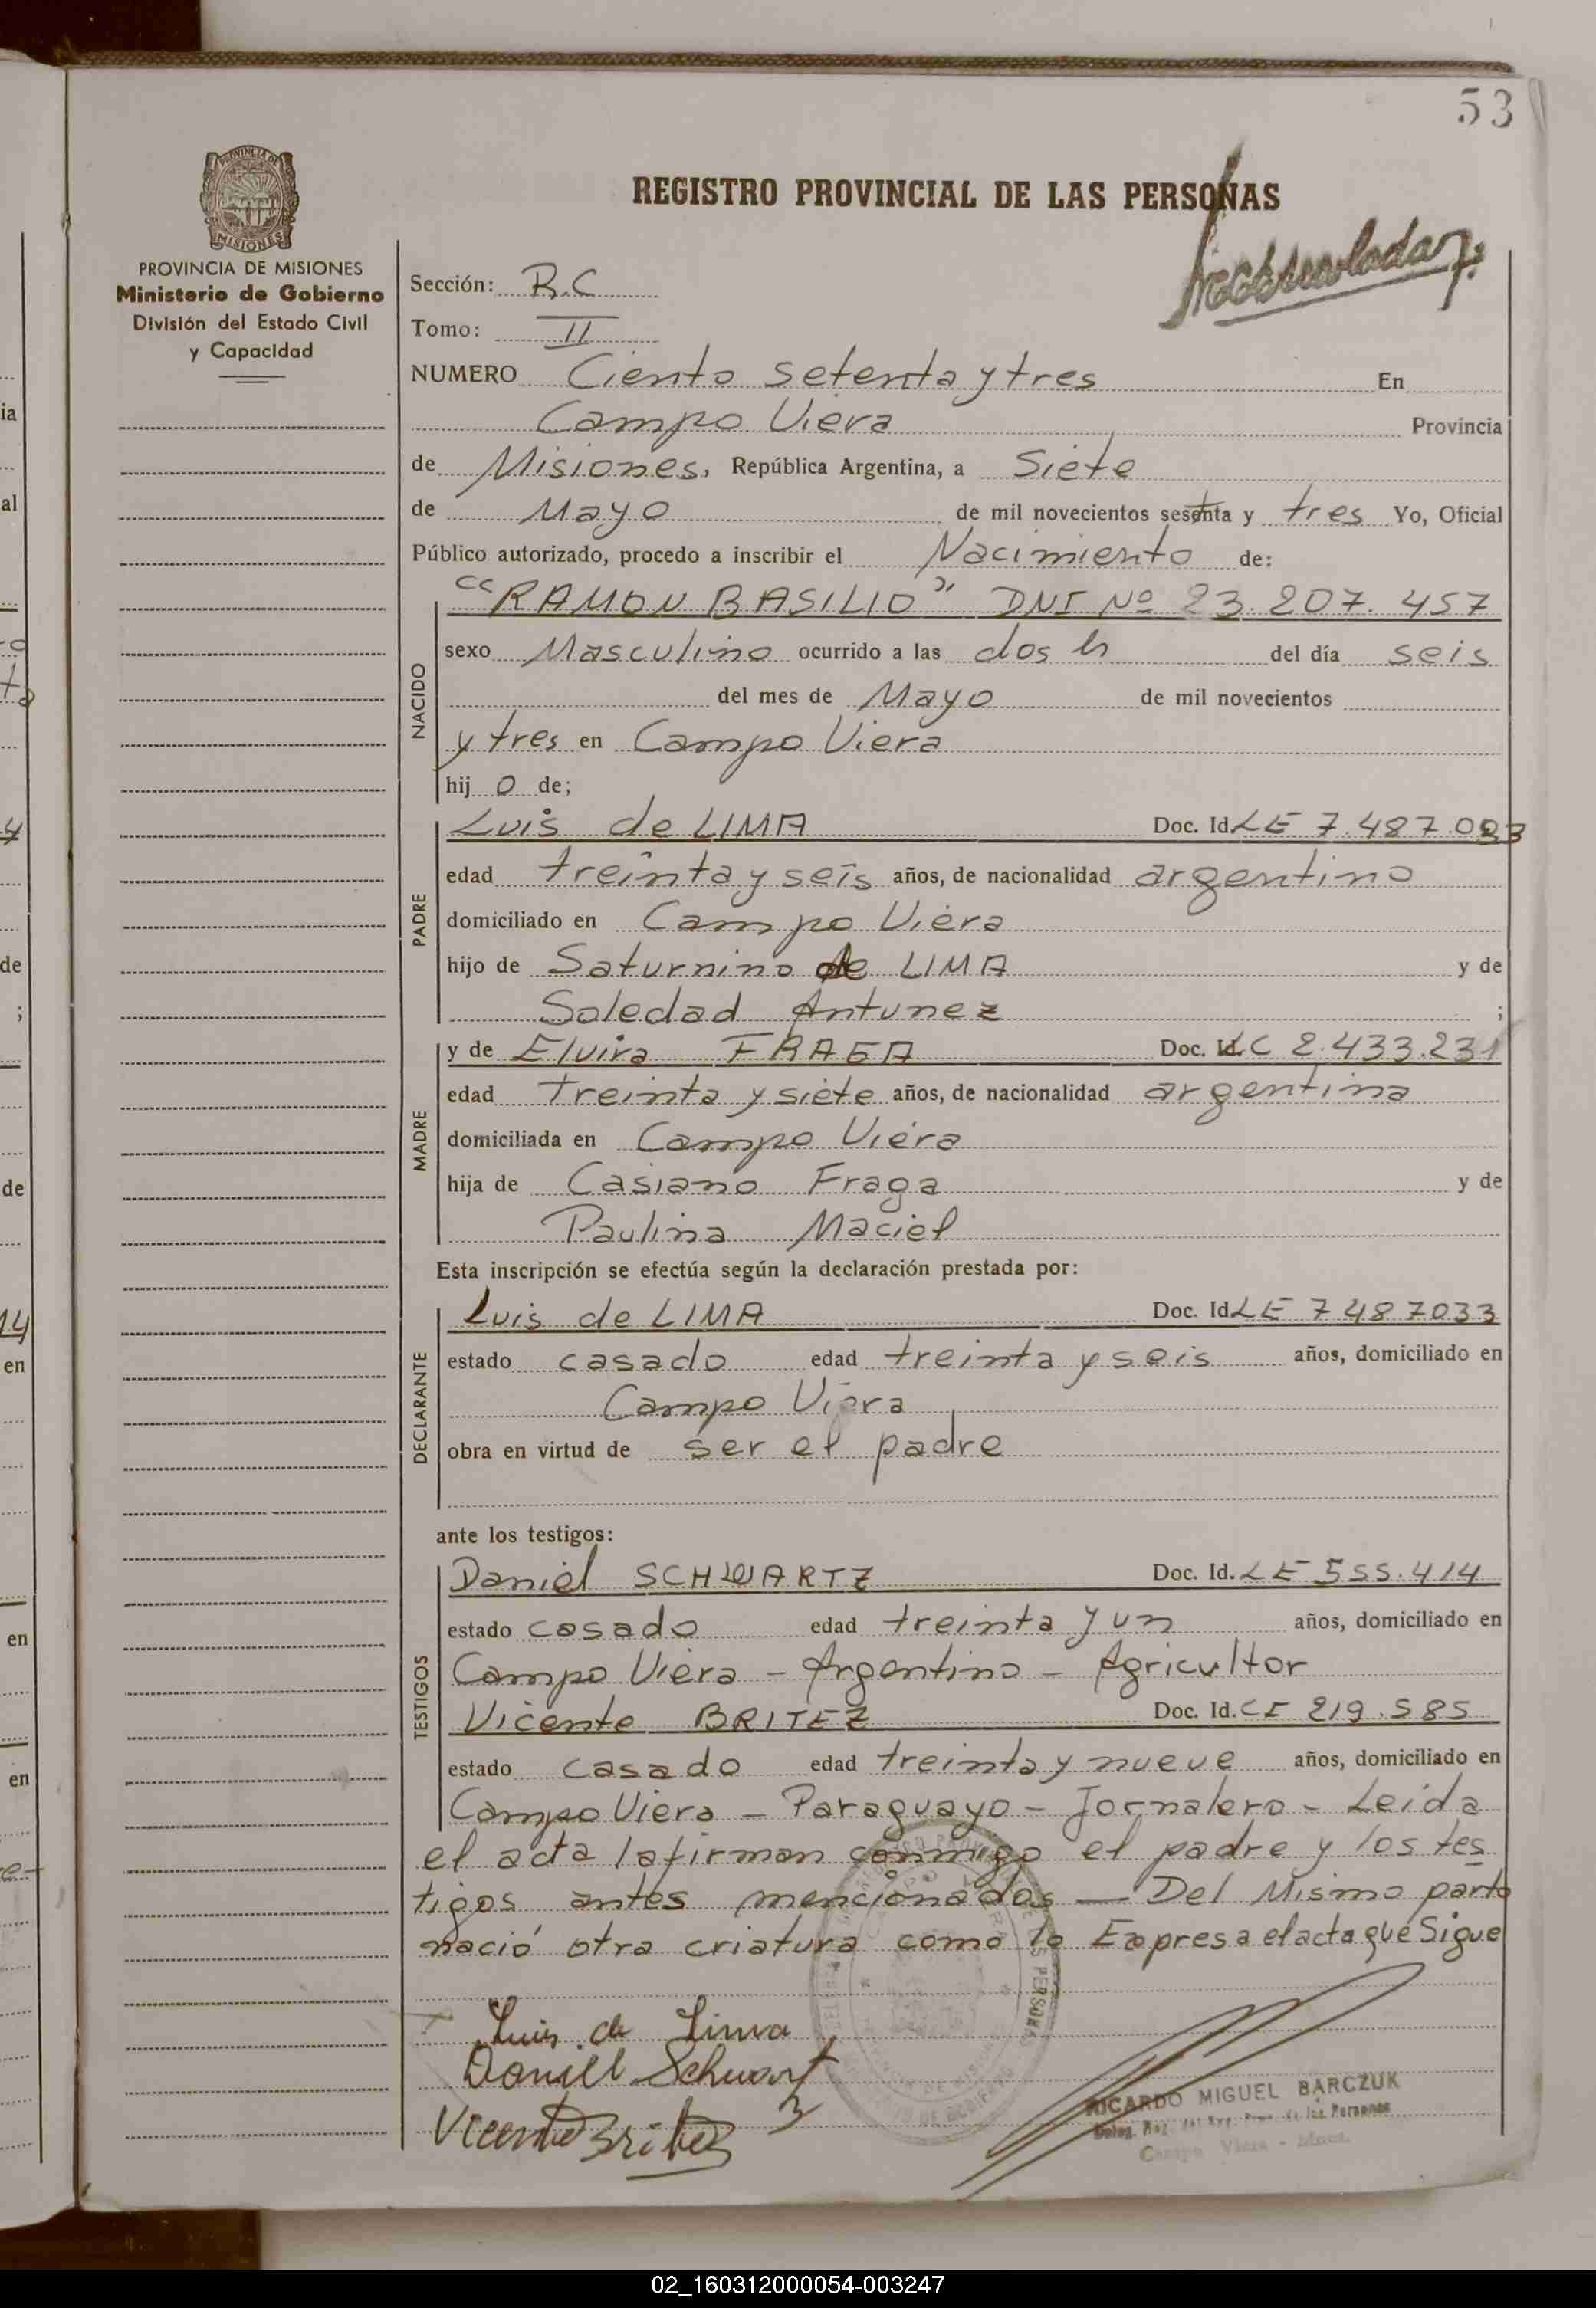 53
REGISTRO PROVINCIAL DE LAS PERSONAS
PROVINCIA DE MISIONES
Ministerio de Gobierno
División del Estado Civil
y Capacidad
Sección: R.C
Tomo: II
NUMERO Ciento setenta y tres En
Campo Viera Provincia
de Misiones, República Argentina, a Siete
de Mayo de mil novecientos setenta y tres Yo, Oficial
Público autorizado, procedo a inscribir el Nacimiento de:
"RAMON BASILIO" DNI Nº 23.207.457
NACIDO
sexo Masculino ocurrido a las dos h del día seis
del mes de Mayo de mil novecientos
y tres en Campo Viera
hij o de;
PADRE
Luis de LIMA Doc. Id. LE 7.487.033
edad treinta y seis años, de nacionalidad argentino
domiciliado en Campo Viera
hijo de Saturnino de LIMA y de
Soledad Antunez ;
MADRE
y de Elvira FRAGA Doc. Id. LC 2.433.231
edad treinta y siete años, de nacionalidad argentina
domiciliada en Campo Viera
hija de Casiano Fraga y de
Paulina Maciel
Esta inscripción se efectúa según la declaración prestada por:
DECLARANTE
Luis de LIMA Doc. Id. LE 7487033
estado casado edad treinta y seis años, domiciliado en
Campo Viera
obra en virtud de ser el padre
ante los testigos:
TESTIGOS
Daniel SCHWARTZ Doc. Id. LE 555.414
estado casado edad treinta y un años, domiciliado en
Campo Viera - Argentino - Agricultor
Vicente BRITEZ Doc. Id. CI 219.585
estado casado edad treinta y nueve años, domiciliado en
Campo Viera - Paraguayo - Jornalero - Leida
el acta la firman conmigo el padre y los tes
tigos antes mencionados — Del Mismo parto
nació otra criatura como lo Expresa el acta que Sigue
Luis de Lima
Daniel Schwart
z
Vicente Britez
RICARDO MIGUEL BARCZUK
Campo Viera - Mnes.
02_160312000054-003247